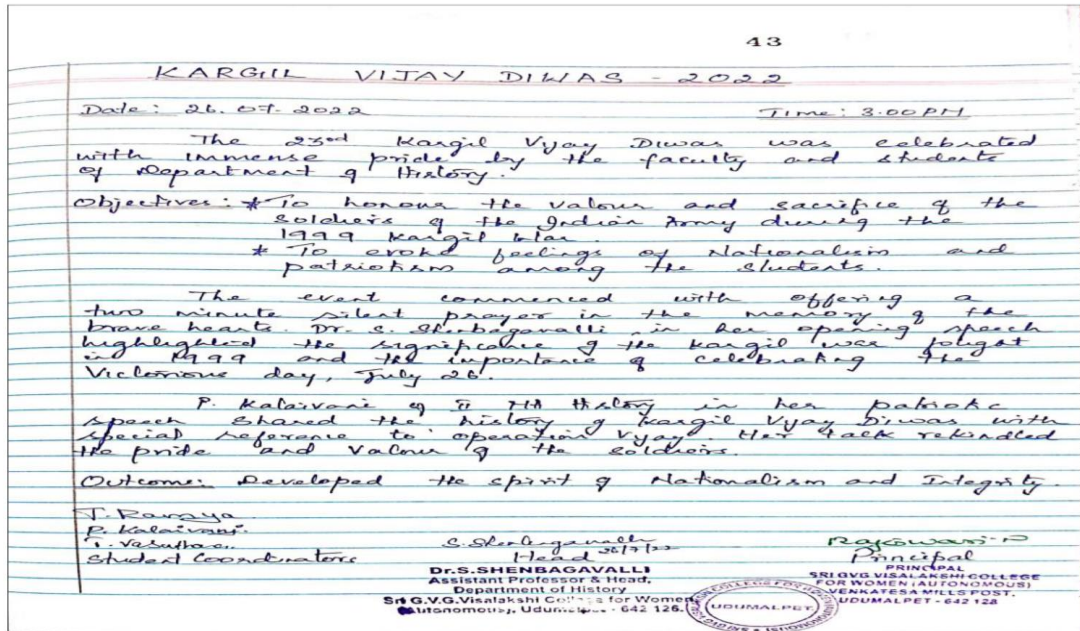 43
KARGIL VIJAY DIWAS - 2022
Date: 26.07.2022 Time: 3.00PM
The 23rd Kargil Vijay Diwas was celebrated
with immense pride by the faculty and students
of Department of History.
Objectives: * To honour the valour and sacrifice of the
soldiers of the Indian Army during the
1999 Kargil War.
* To evoke feelings of Nationalism and
patriotism among the students.
The event commenced with offering a
two minute silent prayer in the memory of the
brave hearts. Dr. S. Shenbagavalli, in her opening speech
highlighted the significance of the Kargil war fought
in 1999 and the importance of celebrating the
Victorious day, July 26.
P. Kalaivani of II MA History in her patriotic
speech shared the history of Kargil Vijay Diwas with
special reference to operation Vijay. Her talk rekindled
the pride and valour of the soldiers.
Outcome: Developed the spirit of Nationalism and Integrity.
T. Ramya
P. Kalaivani
T. S. Shenbagavalli 26/7/22 Rajeswari.P
Student Coordinators Head Principal
Dr.S.SHENBAGAVALLI PRINCIPAL
Assistant Professor & Head, SRI GVG VISALAKSHI COLLEGE
Department of History FOR WOMEN (AUTONOMOUS)
Sri G.V.G.Visalakshi College for Women VENKATESA MILLS POST,
(Autonomous), Udumalpet - 642 128. UDUMALPET - 642 128
UDUMALPET